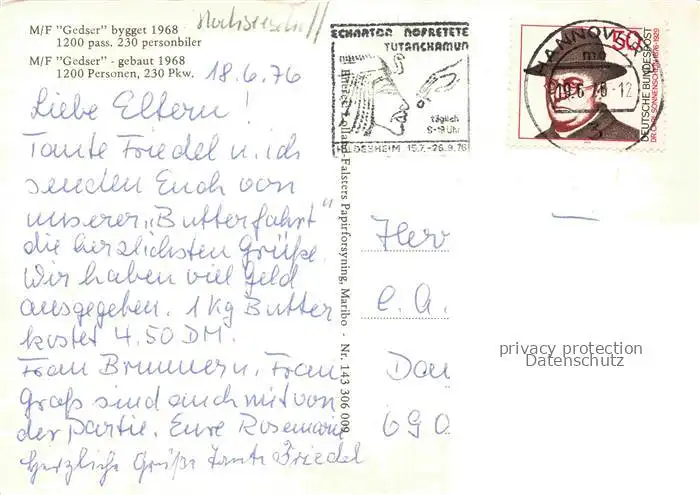 M/F "Gedser" bygget 1968
1200 pass. 230 personbiler
M/F "Gedser" - gebaut 1968
1200 Personen, 230 Pkw.
18.6.76
Liebe Eltern!
Tante Friedel u. ich
senden Euch von
unserer „Butterfahrt"
die herzlichsten Grüße.
Wir haben viel Geld
ausgegeben. 1 Kg Butter
kostet 4.50 DM.
Frau Brunnern, Frau
Graß sind auch mit von
der Partie. Eure Rosemarie
Herzliche Grüße Tante Friedel
ECHNATON NOFRETETE
TUTANCHAMUN
täglich
9-19 Uhr
HILDESHEIM 15.7.-26.9.76
Lolland-Falsters Papirforsyning, Maribo - Nr. 143 306 009
HANNOVER
19.6.76-12
3
50
DEUTSCHE BUNDESPOST
1876-1929
Herv
C. A.
Dau
690
privacy protection
Datenschutz